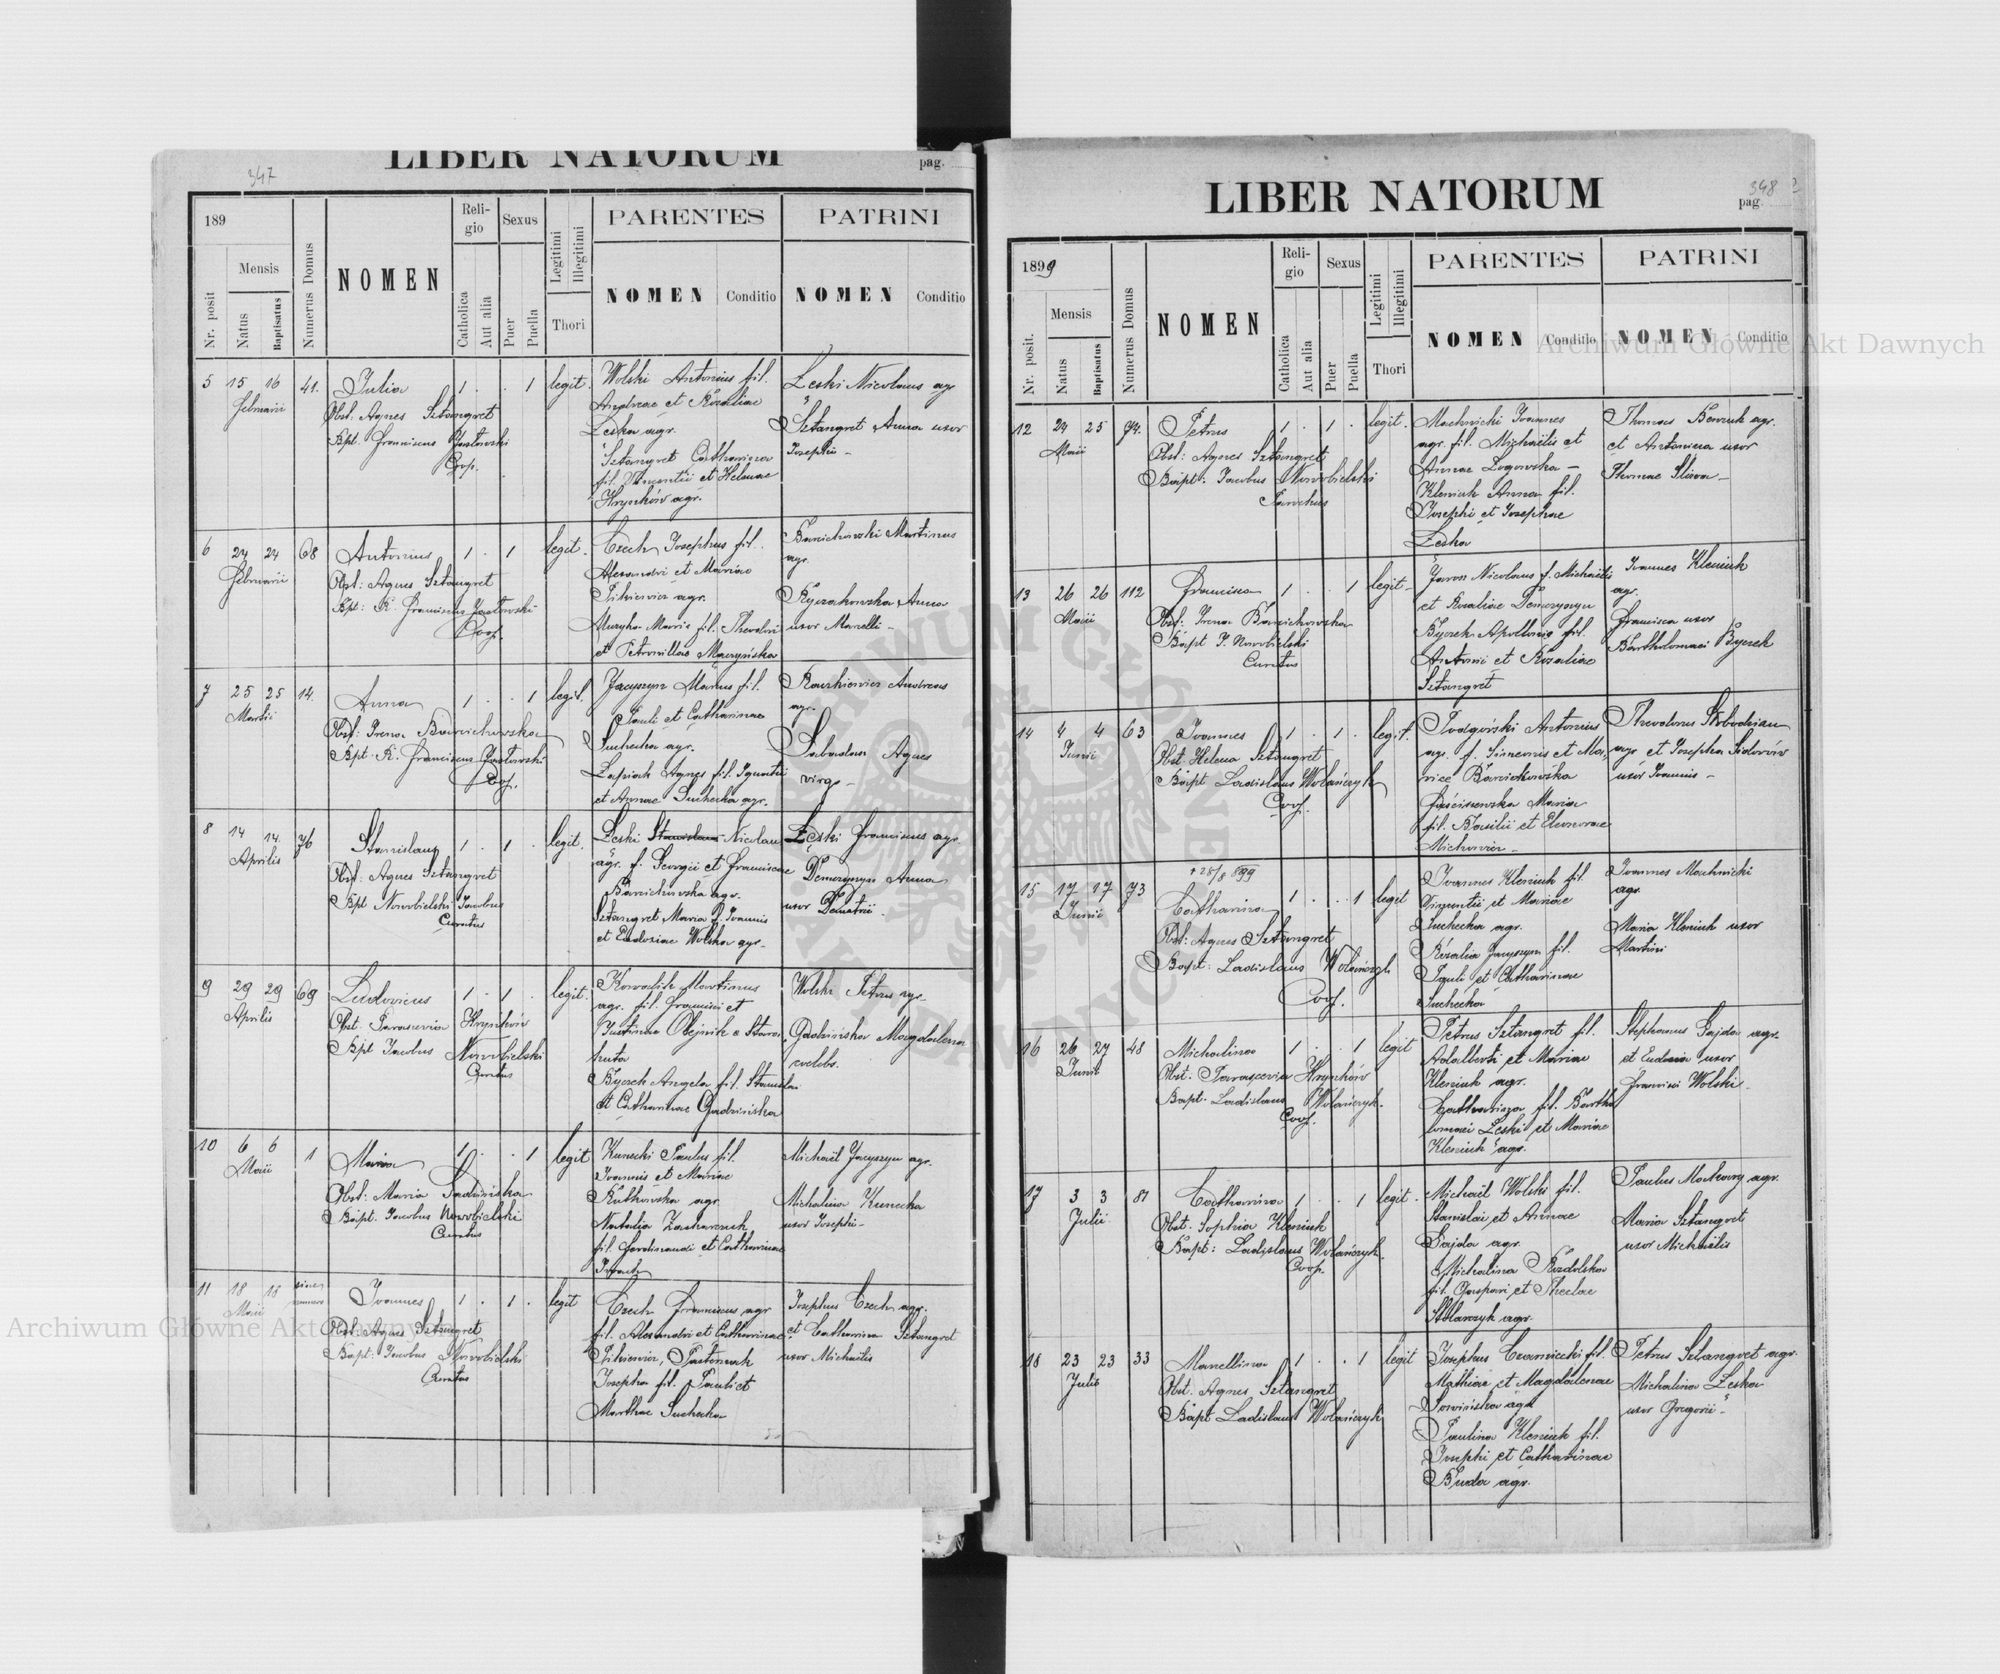 LIBER NATORUM
pag.
347
189
Mensis
Nr. posit
Natus
Baptisatus
Numerus Domus
NOMEN
Religio
Catholica
Aut alia
Sexus
Puer
Puella
Legitimi
Illegitimi
Thori
PARENTES
NOMEN
Conditio
PATRINI
NOMEN
Conditio
5 15 16 41. Julia 1 . . 1 legit.
Februarii
Obst: Agnes Sztangret
Bpt. Franciscus
Coop.
Wolski Antonius fil.
Andreae et Rozaliae
Leska agr.
Sztangret Catharina
fil. Vincentii et Helenae
Hrynków agr.
Leski Nicolaus agr
Sztangret Anna uxor
Josephi -
6 24 24 68 Antonius 1 . 1 legit.
Februarii
Obst: Agnes Sztangret
Bpt: R. Franciscus
Coop.
Czech Josephus fil.
Alexandri et Mariae
Pitkiewicz agr.
Muzyka Maria fil. Theodori
et Petronillae
Banichowski Martinus
agr.
Anna
uxor Marcelli -
7 25 25 14. Anna 1 . . 1 legit.
Martii
Obst: Irena Banichowska
Bpt. R. Franciscus
Coop.
Jacyszyn Marcus fil.
Pauli et Catharinae
Suchecka agr.
Łapiak Agnes fil. Ignatii
et Annae Suchecka agr.
Andreas
agr.
Agnes
virgo -
8 14 14 76 Stanislaus 1 . 1 . legit.
Aprilis
Obst: Agnes Sztangret
Bpt Nowobielski Jacobus
Curatus
Leski Stanislaus Nicolaus
agr. f. Georgii et Franciscae
Banichowska agr.
Sztangret Maria f. Joannis
et Eudoxiae Wolska agr.
Leski Franciscus agr.
Demczyszyn Anna
uxor Demetrii.
9 29 29 69 Ludovicus 1 . 1 . legit.
Aprilis
Obst. Parascevia Hrynków
Bpt Jacobus Nowobielski
Curatus
Kowalik Martinus
agr. fil. Francisci et
Justinae Olejnik e Stara
huta
Byczek Angela fil. Stanislai
et Catharinae Gadzinska
Wolski Petrus agr.
Gadzinska Magdalena
coelebs.
10 6 6 1 Maria 1 . . 1 legit
Maii
Obst: Maria Gadzinska
Bapt. Jacobus Nowobielski
Curatus
Kunecki Paulus fil.
Joannis et Mariae
Rutkowska agr.
Natalia Zacharczuk
fil. Ferdinandi et Catharinae
Michaël Jacyszyn agr.
Michalina Kunecka
uxor Josephi -
11 18 18 sine numero Joannes 1 . 1 . legit
Maii
Obst: Agnes Sztangret
Bapt: Jacobus Nowobielski
Curatus
Czech Franciscus agr
fil. Alexandri et Catharinae
Pitkiewicz, Pasternak
Josepha fil. Pauli et
Marthae Suchecka
Josephus Czech agr.
et Catharina Sztangret
uxor Michaëlis
LIBER NATORUM
348
pag.
1899
Mensis
Nr. posit.
Natus
Baptisatus
Numerus Domus
NOMEN
Religio
Catholica
Aut alia
Sexus
Puer
Puella
Legitimi
Illegitimi
Thori
PARENTES
NOMEN
Conditio
PATRINI
NOMEN
Conditio
12 24 25 74. Petrus 1 . 1 . legit.
Maii
Obst: Agnes Sztangret
Bapt: Jacobus Nowobielski
Parochus
Machnicki Joannes
agr. fil. Michaëlis et
Annae Łogowska -
Kleniuk Anna fil.
Josephi et Josephae
Leska
Thomas agr.
et Antonina uxor
Thomae Śliwa -
13 26 26 112 Francisca 1 . . 1 legit -
Maii
Obst: Irena Banichowska
Bapt J. Nowobielski
Curatus
Jaross Nicolaus f. Michaëlis
et Rozaliae Demczyszyn
Byczek Apollonia fil.
Antonii et Rozaliae
Sztangret
Joannes Kleniuk
agr.
Francisca uxor
Bartholomaei Byczek
14 4 4 63 Joannes 1 . 1 . legit.
Junii
Obst Helena Sztangret
Bapt Ladislaus Wołańczyk
Coop.
Podgórski Antonius
agr. f. Simeonis et Ma-
riae Banichowska
Maria
fil. Basilii et Eleonorae
Michowicz -
Theodorus Skobodzian
agr et Josepha Sidorów
uxor Joannis -
+ 28/8 899
15 17 17 73 Catharina 1 . . 1 legit
Junii
Obst: Agnes Sztangret
Bapt: Ladislaus Wołańczyk
Coop.
Joannes Kleniuk fil.
Vincentii et Mariae
Suchecka agr.
Rozalia Jacyszyn fil.
Pauli et Catharinae
Suchecka
Joannes Machnicki
agr.
Maria Kleniuk uxor
Martini
16 26 27 48 Michalina 1 . . 1 legit
Junii
Obst: Parascevia Hrynków
Bapt. Ladislaus Wołańczyk.
Coop.
Petrus Sztangret fil.
Adalberti et Mariae
Kleniuk agr.
Catharina fil. Bartho
lomaei Leski et Mariae
Kleniuk agr.
Stephanus Gajda agr.
et Eudoxia uxor
Francisci Wolski
17 3 3 81 Catharina 1 . . 1 legit.
Julii
Obst. Sophia Kleniuk
Bapt: Ladislaus Wołańczyk.
Coop.
Michaël Wolski fil.
Stanislai et Annae
Gajda agr.
Michalina Rozdolska
fil. Gaspari et Theclae
Stolarczyk agr.
Paulus agr.
Maria Sztangret
uxor Michaëlis
18 23 23 33 Marcellina 1 . . 1 legit
Julii
Obst. Agnes Sztangret
Bapt Ladislaus Wołańczyk
Josephus Czarniecki fil.
Mathiae et Magdalenae
agr.
Paulina Kleniuk fil.
Josephi et Catharinae
Buda agr.
Petrus Sztangret agr.
Michalina Leska
uxor Gregorii -
Archiwum Główne Akt Dawnych
Archiwum Główne Akt Dawnych
ARCHIWUM GŁÓWNE AKT DAWNYCH